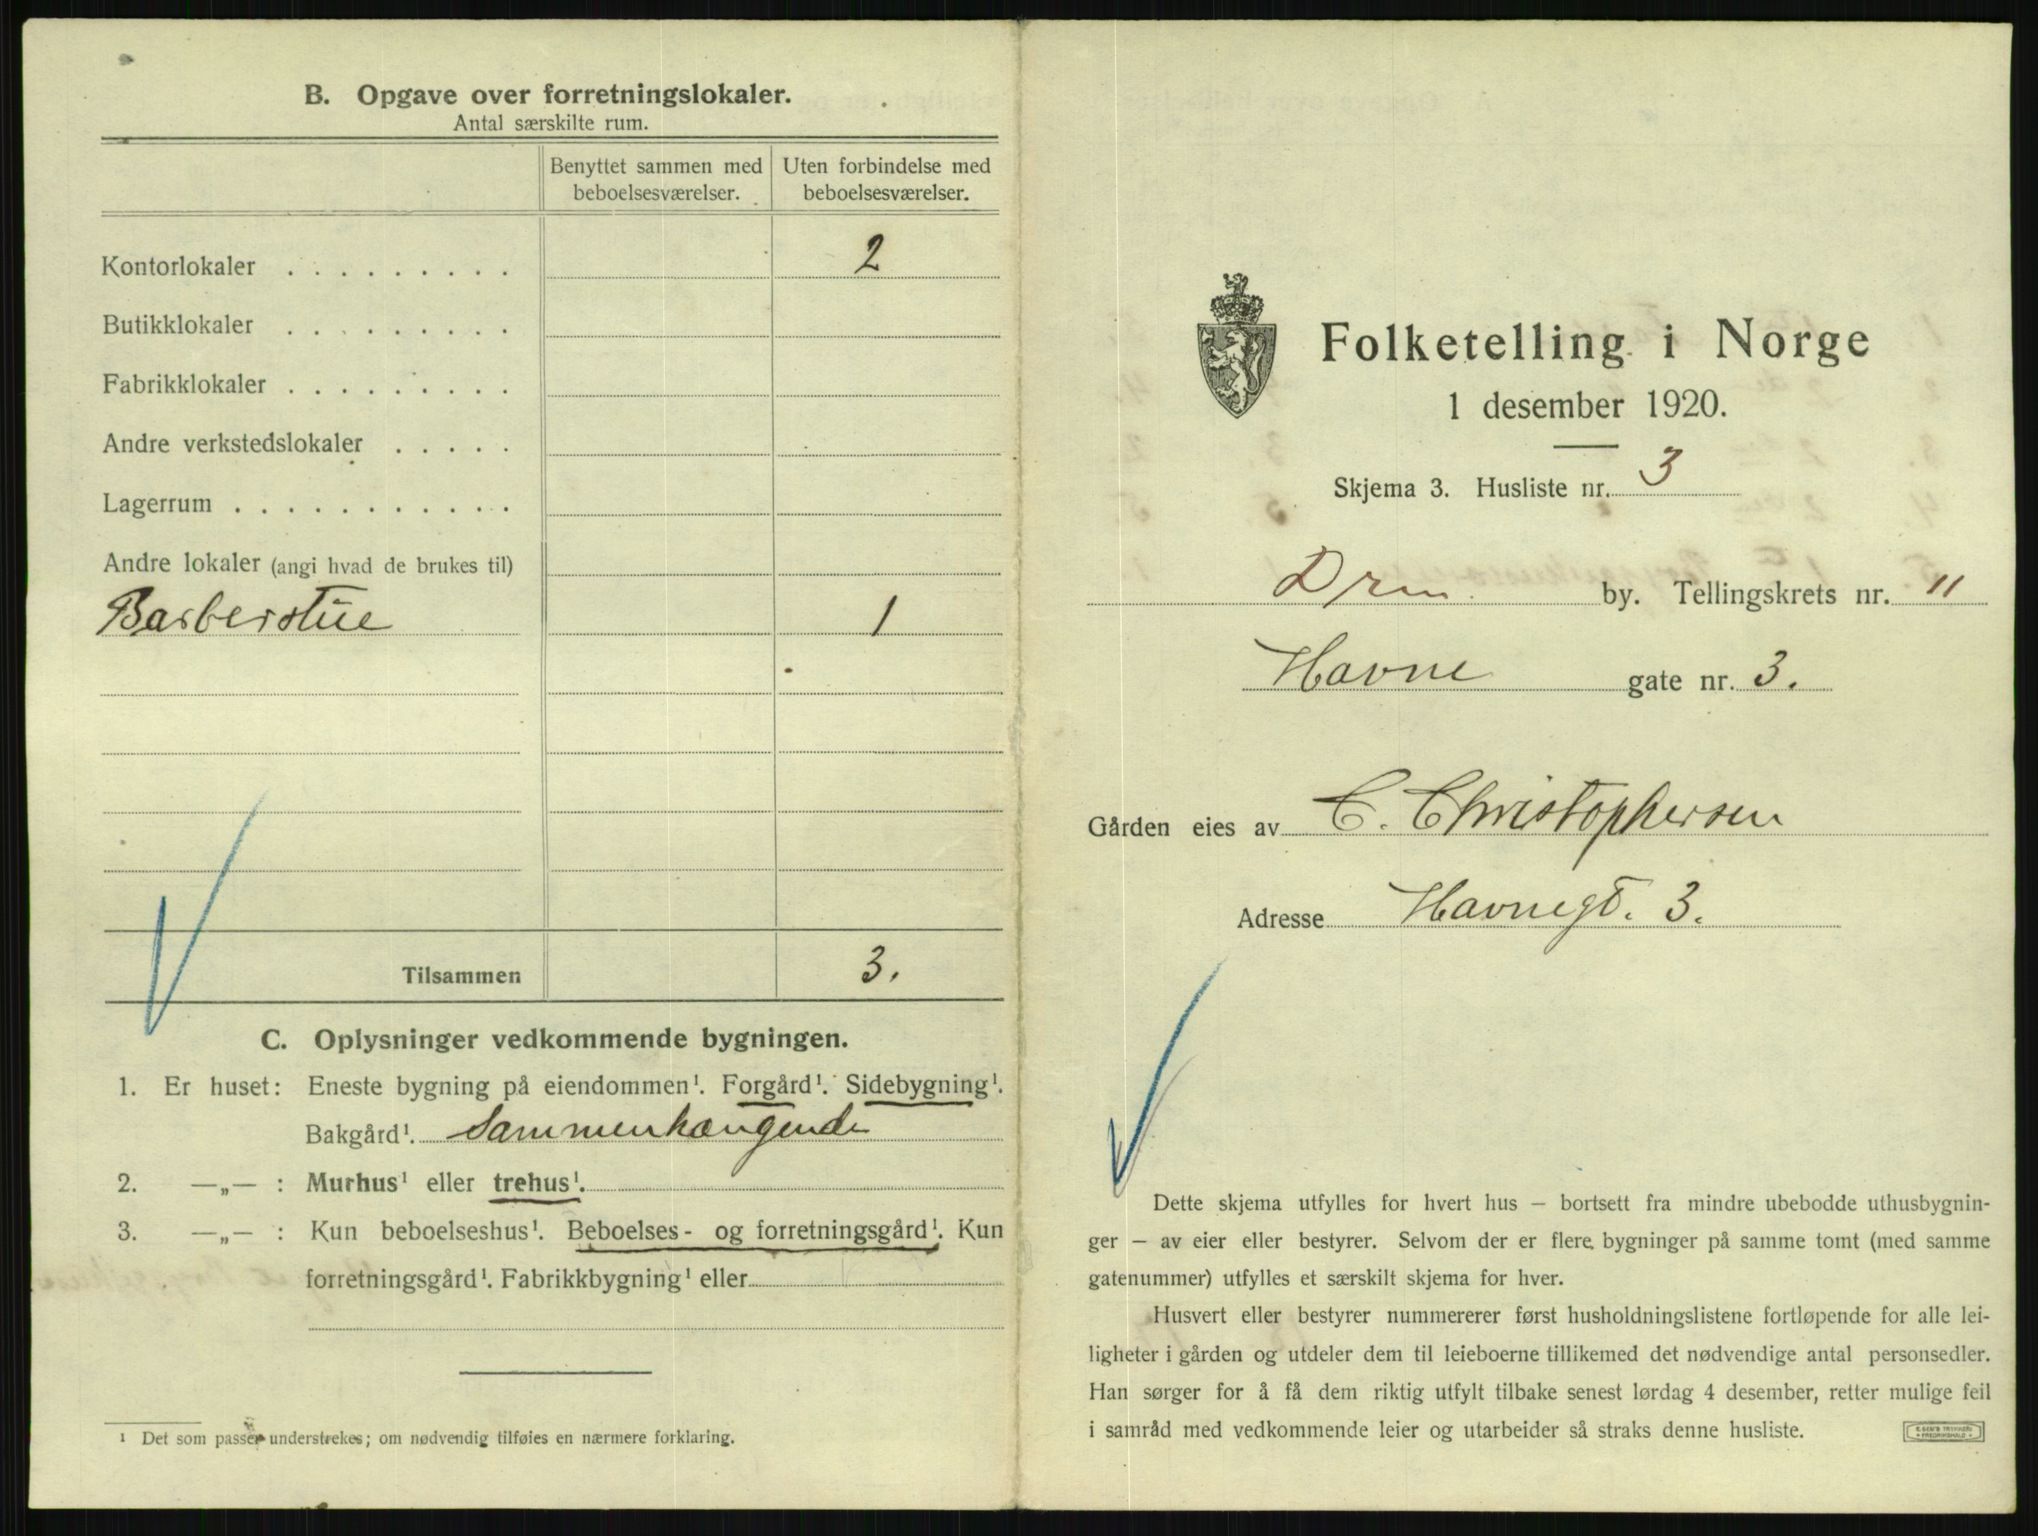 B. Opgave over forretningslokaler.
Antal særskilte rum.
Benyttet sammen med beboelsesværelser.
Uten forbindelse med beboelsesværelser.
Kontorlokaler . . . . . . . . . 2
Butikklokaler . . . . . . . . .
Fabrikklokaler . . . . . . . . .
Andre verkstedslokaler . . . . .
Lagerrum . . . . . . . . . . . .
Andre lokaler (angi hvad de brukes til)
Barberstue 1
Tilsammen 3.
C. Oplysninger vedkommende bygningen.
1. Er huset: Eneste bygning på eiendommen¹. Forgård¹. Sidebygning¹.
Bakgård¹. Sammenhængende
2. —„— : Murhus¹ eller trehus¹.
3. —„— : Kun beboelseshus¹. Beboelses- og forretningsgård¹. Kun
forretningsgård¹. Fabrikkbygning¹ eller
¹ Det som passer understrekes; om nødvendig tilføies en nærmere forklaring.
Folketelling i Norge
1 desember 1920.
Skjema 3. Husliste nr. 3
Drm. by. Tellingskrets nr. 11
Havne gate nr. 3.
Gården eies av C. Christophersen
Adresse Havnegt. 3.
Dette skjema utfylles for hvert hus — bortsett fra mindre ubebodde uthusbygnin-
ger — av eier eller bestyrer. Selvom der er flere bygninger på samme tomt (med samme
gatenummer) utfylles et særskilt skjema for hver.
Husvert eller bestyrer nummererer først husholdningslistene fortløpende for alle lei-
ligheter i gården og utdeler dem til leieboerne tillikemed det nødvendige antal personsedler.
Han sørger for å få dem riktig utfylt tilbake senest lørdag 4 desember, retter mulige feil
i samråd med vedkommende leier og utarbeider så straks denne husliste.